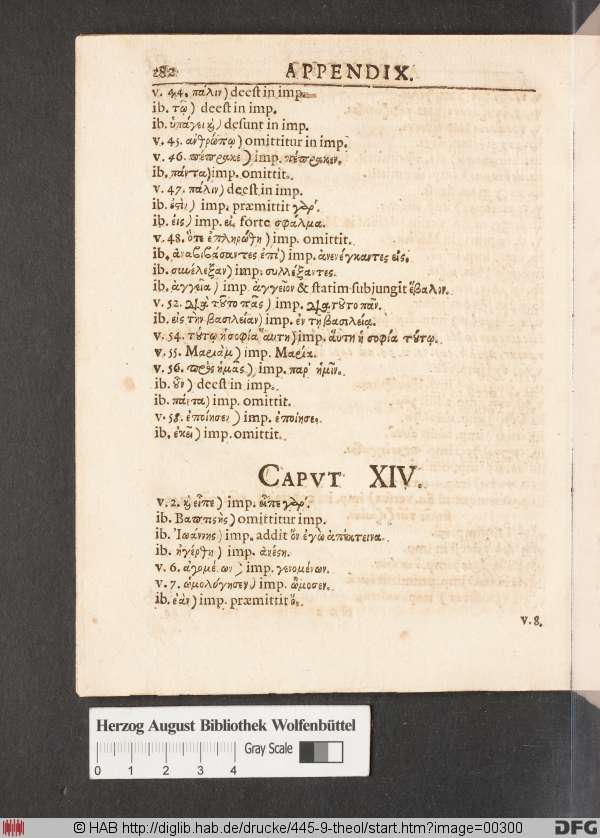 282 APPENDIX.
v. 44. πάλιν) deest in imp.
ib. τῷ) deest in imp.
ib. ὑπάγει ϗ) desunt in imp.
v. 45. ἀνθρώπῳ) omittitur in imp.
v. 46. πέπρακε) imp. πέπρακεν.
ib. πάντα) imp. omittit.
v. 47. πάλιν) deest in imp.
ib. ἐπὶ) imp. præmittit γὸ.
ib. εἰς) imp. εἰ, forte σφάλμα.
v. 48. ὅτε ἐπληρώθη) imp. omittit.
ib. ἀναβιβάσαντες ἐπὶ) imp. ἀνενέγκαντες εἰς.
ib. συνέλεξαν) imp. συλλέξαντες.
ib. ἀγγεῖα) imp. ἀγγεῖον & statim subjungit ἔβαλον.
v. 52. διὰ τοῦτο πᾶς) imp. διὰ τοῦτο πᾶν.
ib. εἰς τὴν βασιλείαν) imp. ἐν τῇ βασιλείᾳ.
v. 54. τούτῳ ἡ σοφία αὕτη) imp. αὕτη ἡ σοφία τούτῳ.
v. 55. Μαριὰμ) imp. Μαρία.
v. 56. πρὸς ἡμᾶς) imp. παρ' ἡμῖν.
ib. οὖν) deest in imp.
ib. πάντα) imp. omittit.
v. 58. ἐποίησεν) imp. ἐποίησε.
ib. ἐκεῖ) imp. omittit.
CAPVT XIV.
v. 2. ϗ εἶπε) imp. εἶπε γὸ.
ib. Βαπτιςὴς) omittitur imp.
ib. Ἰωάννης) imp. addit ὃν ἐγὼ ἀπέκτεινα.
ib. ἠγέρθη) imp. ἀνέςη.
v. 6. ἀγομένων) imp. γενομένων.
v. 7. ὡμολόγησεν) imp. ὤμοσεν.
ib. ἐὰν) imp. præmittit ὃ.
v. 8.
Herzog August Bibliothek Wolfenbüttel
0 1 2 3 4 Gray Scale
© HAB http://diglib.hab.de/drucke/445-9-theol/start.htm?image=00300
DFG